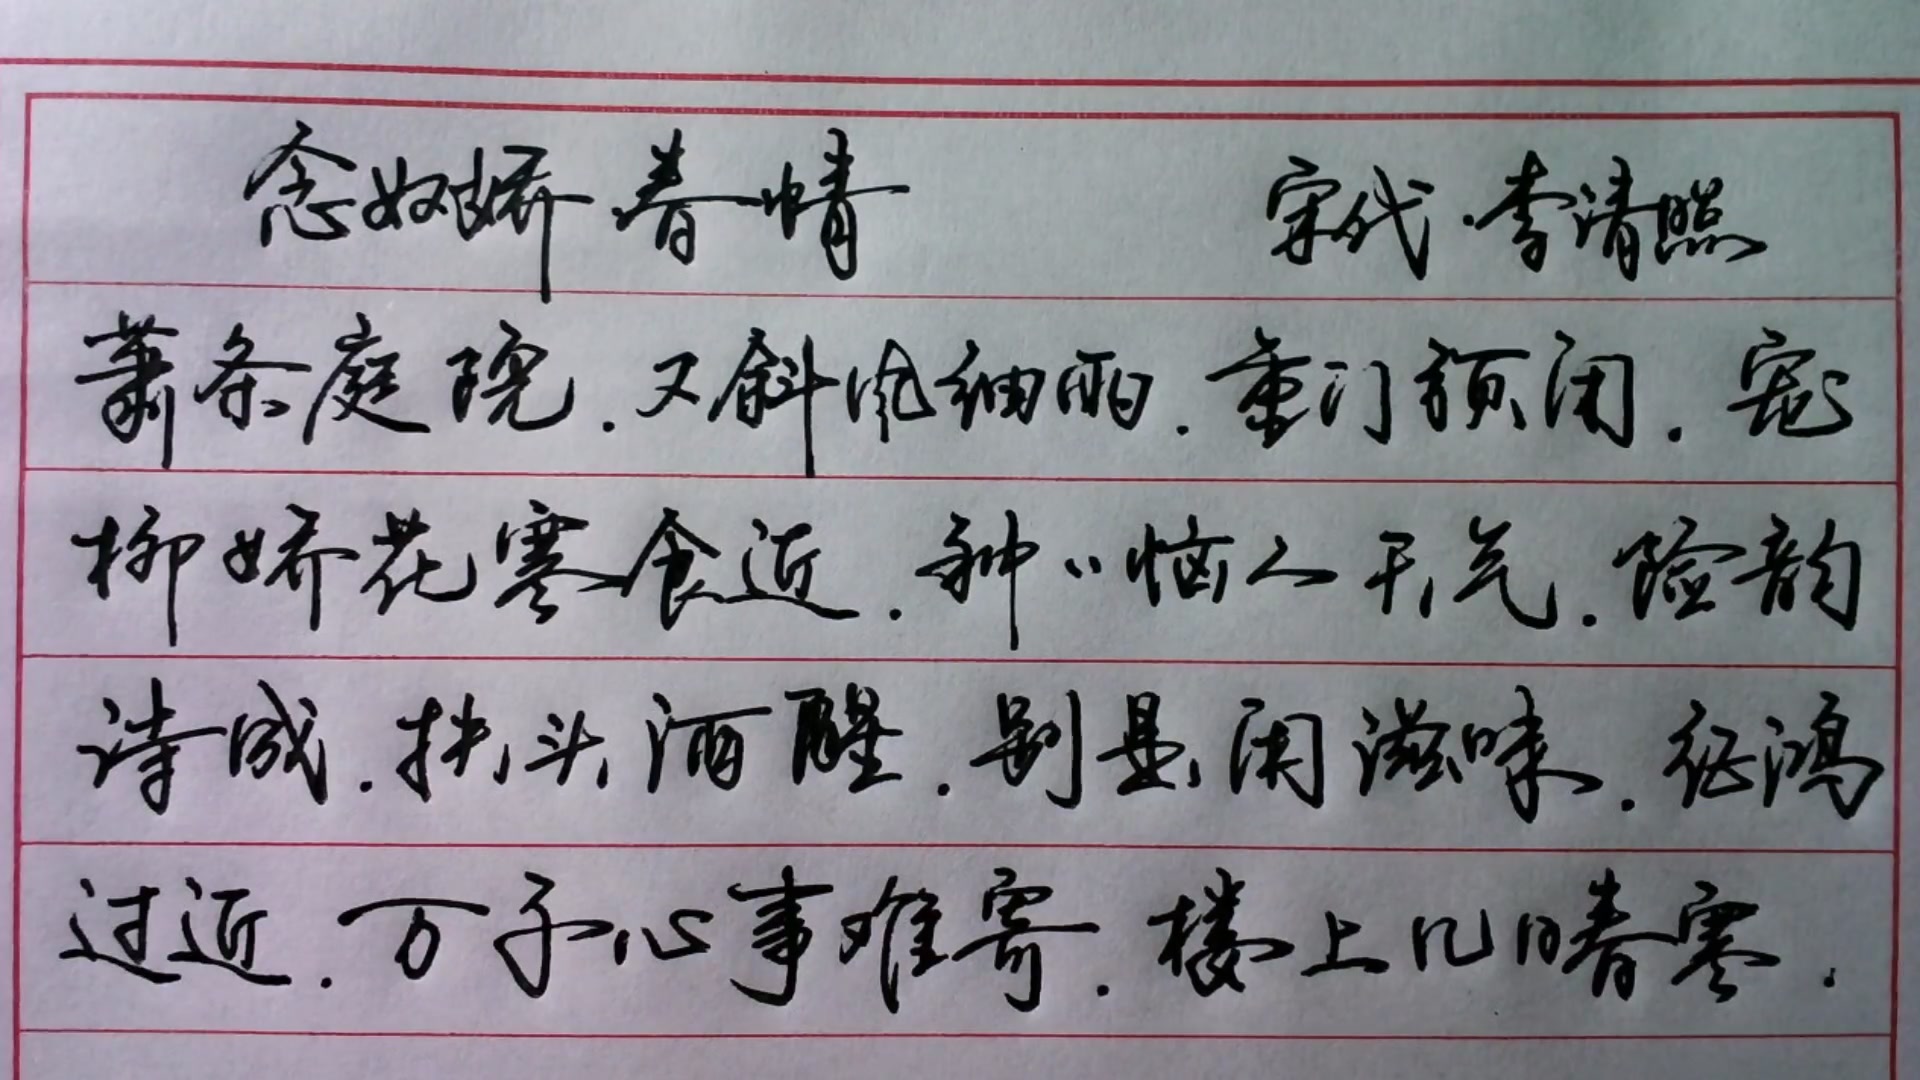 念奴娇 春情 宋代·李清照
萧条庭院.又斜风细雨.重门须闭.宠
柳娇花寒食近.种〃恼人天气.险韵
诗成.扶头酒醒.别是闲滋味.征鸿
过近.万千心事难寄.楼上几日春寒.